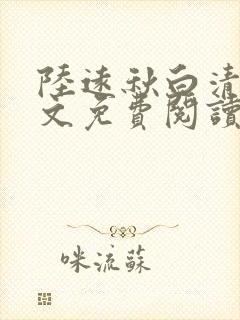 陸遠秋白清
文免費閱讀
咪流蘇